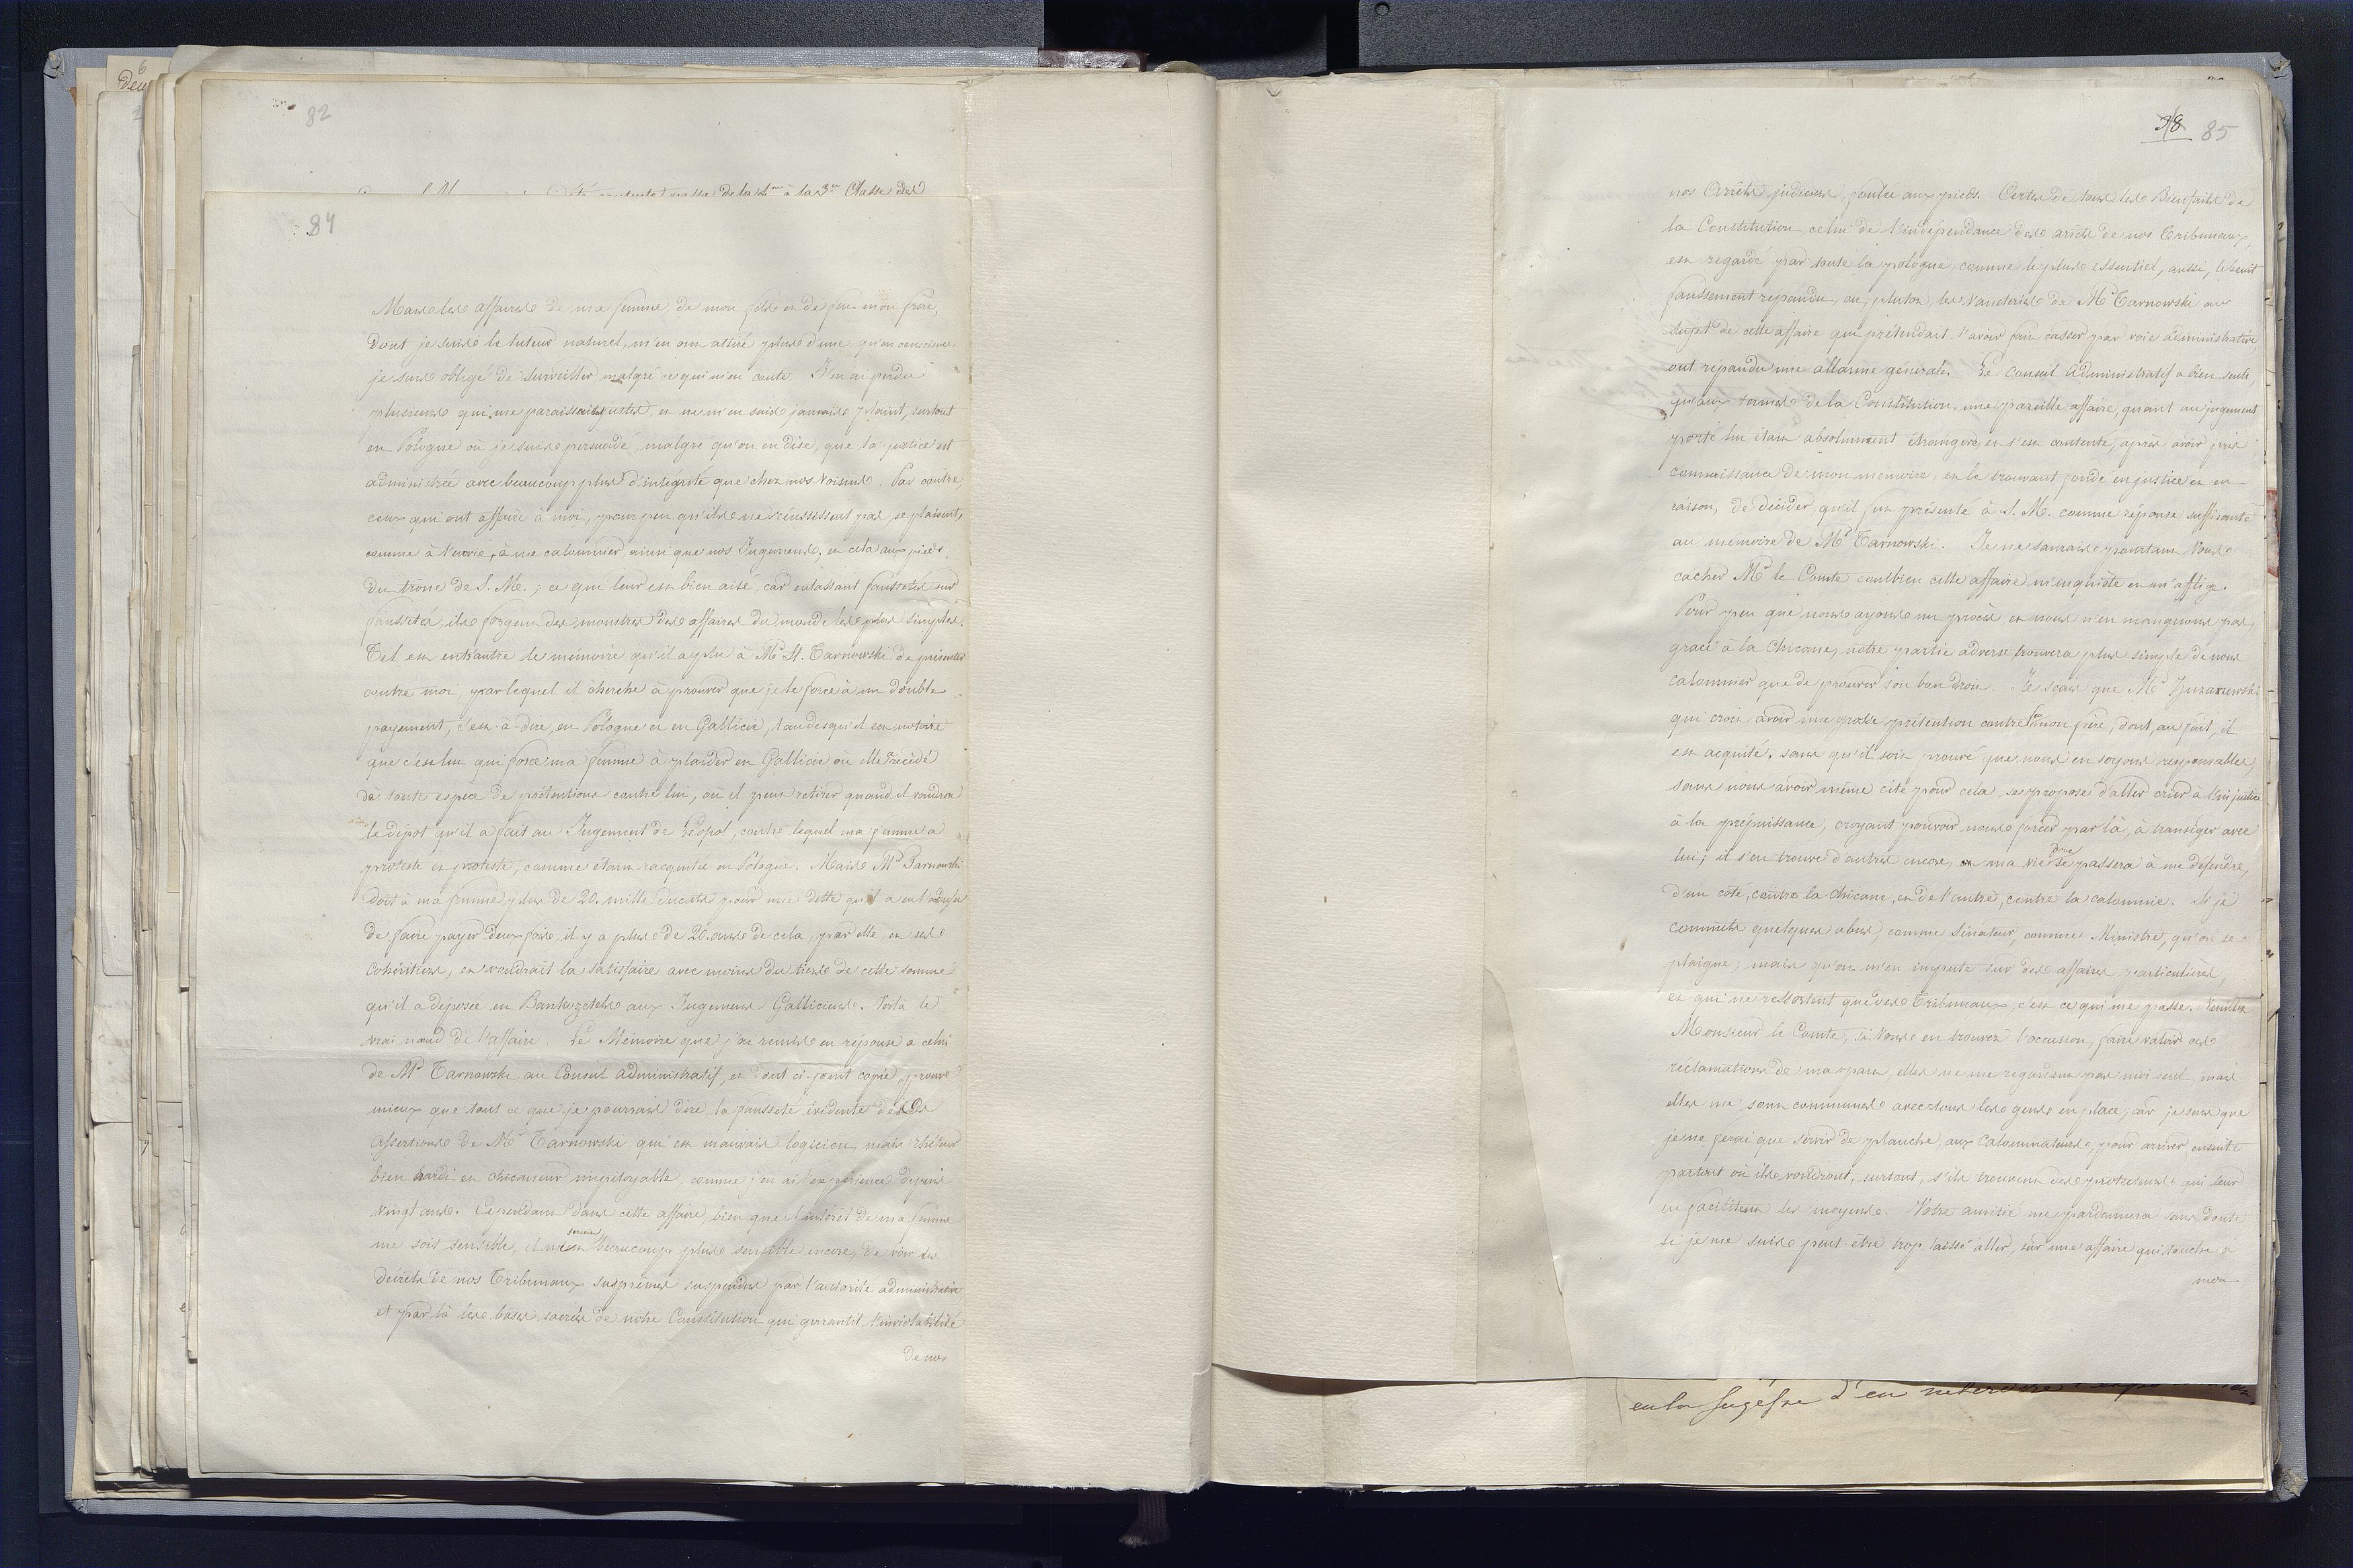 82
de la 4me à la 3me Classe des
84
Mais les affaires de ma femme, de mon fils et de feu mon frère,
dont je suis le tuteur naturel, m'en ont attiré plus d'une qu'en conscience
je suis obligé de surveiller malgré ce qui m'en coute. J'en ai perdu
plusieurs qui me paraissaient justes, et ne m'en suis jamais plaint, surtout
en Pologne où je suis persuadé, malgré qu'on en dise, que la justice est
administrée avec beaucoup plus d'intégrité que chez nos Voisins. Par contre,
ceux qui ont affaire à moi, pour peu qu'ils ne réussissent pas, se plaisent,
comme à l'envie, à me calomnier ainsi que nos Jugemens, et cela aux pieds
du trône de S. M.; ce qui leur est bien aisé, car entassant faussetés sur
faussetés, ils forgent des monstres des affaires du monde les plus simples.
Tel est entr'autre le mémoire qu'il a plu à Mr. St. Tarnowski de présenter
contre moi, par lequel il cherche à prouver que je le force à un double
payement, c'est-à-dire en Pologne et en Gallicie, tandisqu'il est notoire
que c'est lui qui force ma femme à plaider en Gallicie où elle récède
de toute espèce de prétentions contre lui, où il peut retirer quand il voudra
le dépot qu'il a fait au Jugement de Léopol, contre lequel ma femme a
protesté et proteste, comme étant racquittée en Pologne. Mais Mr Tarnowski
doit à ma femme plus de 20. mille ducats pour une dette qu'il a eu l'adresse
de faire payer deux fois, il y a plus de 20. ans de cela, par elle et ses
Cohéritiers, et voudrait la satisfaire avec moins du tiers de cette somme
qu'il a déposée en Bankozetels aux Jugemens Galliciens. Voilà le
vrai nœud de l'affaire. Le Mémoire que j'ai remis en réponse à celui
de Mr Tarnowski au Conseil administratif, et dont ci-joint copie, prouve
mieux que tout ce que je pourrais dire la fausseté évidente des
assertions de Mr Tarnowski qui est mauvais logicien, mais rhéteur
bien hardi et chicaneur impitoyable, comme j'en ai l'expérience depuis
vingt ans. Cependant dans cette affaire, bien que l'intérêt de ma femme
me soit sensible, il m'est beaucoup plus sensible encore, de voir les
décrets de nos Tribunaux suprêmes suspendus par l'autorité administrative
et par là les bases sacrées de notre Constitution qui garantit l'inviolabilité
de nos
38 85
nos Arrêts judiciaires, foulée aux pieds. Certes de tous les Bienfaits de
la Constitution, celui de l'indépendance des arrêts de nos Tribunaux,
est regardé par toute la pologne, comme le plus essentiel, aussi, le bruit
faussement repandu, ou, plutot, les vanteries de Mr Tarnowski au
sujet de cette affaire qui prétendait l'avoir fait casser par voie administrative,
ont répandu une allarme générale. Le Conseil Administratif a bien senti
qu'aux termes de la Constitution, une pareille affaire, quant au jugement
porté lui était absolument étrangère, et s'est contenté, après avoir pris
connaissance de mon mémoire, et le trouvant fondé en justice et en
raison, de décider qu'il fut présenté à S. M. comme réponse suffisante
au mémoire de Mr Tarnowski. Je ne saurais pourtant Vous
cacher Mr le Comte combien cette affaire m'inquiète et m'afflige.
Pour peu que nous ayons un procès, et nous n'en manquons pas,
grace à la Chicane, notre partie adverse trouvera plus simple de nous
calomnier que de prouver son bon droit. Je sçais que Mr
qui croit avoir une grosse prétention contre feu mon père, dont, au fait, il
est acquité, sans qu'il soit prouvé que nous en soyons responsables,
sans nous avoir même cité pour cela, se propose d'aller crier à l'injustice
à la prépuissance, croyant pouvoir nous forcer par là, à transiger avec
lui; il s'en trouve d'autres encore, et ma vie donc se passera à me défendre,
d'un côté, contre la chicane, et de l'autre, contre la calomnie. Si je
commets quelques abus, comme Sénateur, comme Ministre, qu'on se
plaigne; mais qu'on m'en impute sur des affaires particulières,
et qui ne ressortent que des Tribunaux, c'est ce qui me passe. Veuillez
Monsieur le Comte, si Vous en trouvez l'occasion, faire valoir ces
réclamations de ma part, elles ne me regardent pas moi seul, mais
elles me sont communes avec tous les gens en place, car je sens que
je ne ferai que servir de planche, aux Calomniateurs, pour arriver ensuite
partout où ils voudront, surtout, s'ils trouvent des protecteurs qui leur
en facilitent les moyens. Votre amitié me pardonnera sans doute
si je me suis peut être trop laissé aller, sur une affaire qui touche à
mon